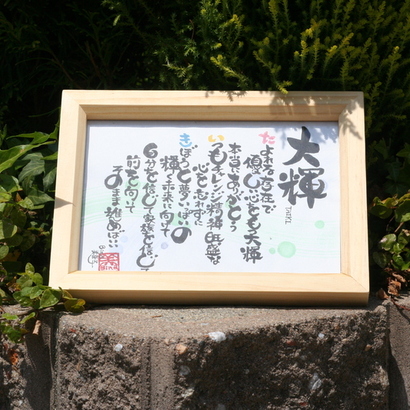 大輝
たよれる存在で
優しい心をもつ大輝
本当にありがとう
いつもチャレンジ精神旺盛な
心を忘れずに
きぼうと夢いっぱいの
輝く未来に向って
自分を信じて家族を信じて
前を向いて
そのまま進めばいい